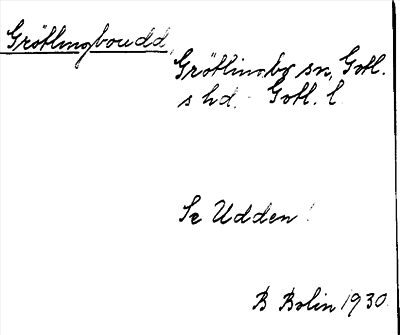 Grötlingboudd,
Grötlingbo sn, Gotl.
s hd. Gotl. l.
Se Udden!
B Bolin 1930.